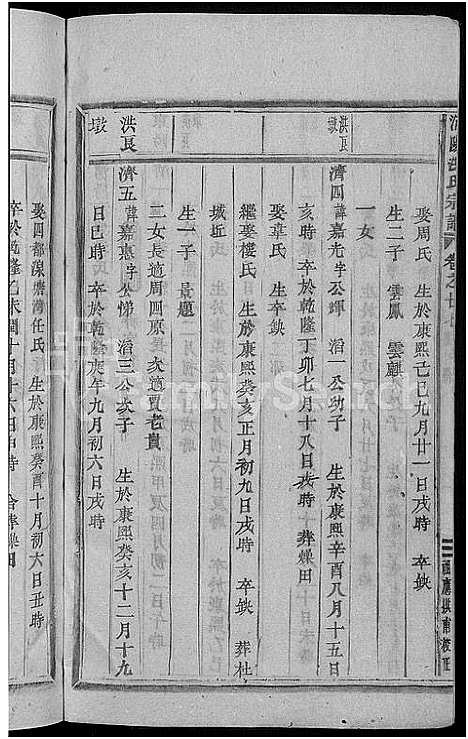 娶周氏 生於康熙己巳九月廿一日戌時 卒缺
生二子 雲鳳 雲麒
一女氏
洪良
濟四諱嘉光字公輝 滔一公幼子 生於康熙辛酉八月十五日
亥時 卒於乾隆丁卯七月十八日 時 葬燥田
娶章氏 生卒缺
繼娶樓氏 生於康熙癸亥正月初九日戌時 卒缺 葬杜
城近
生一子 景題
二女長適周四原 次適賈老貴
洪良
濟五諱嘉惠字公悌 滔三公次子 生於康熙癸亥十二月十九
日巳時 卒於乾隆庚午九月初六日戌時
墩
娶四都源塘灣任氏 生於康熙癸酉十月初六日丑時
卒於乾隆乙未閏十月十六日申時 合葬燥田